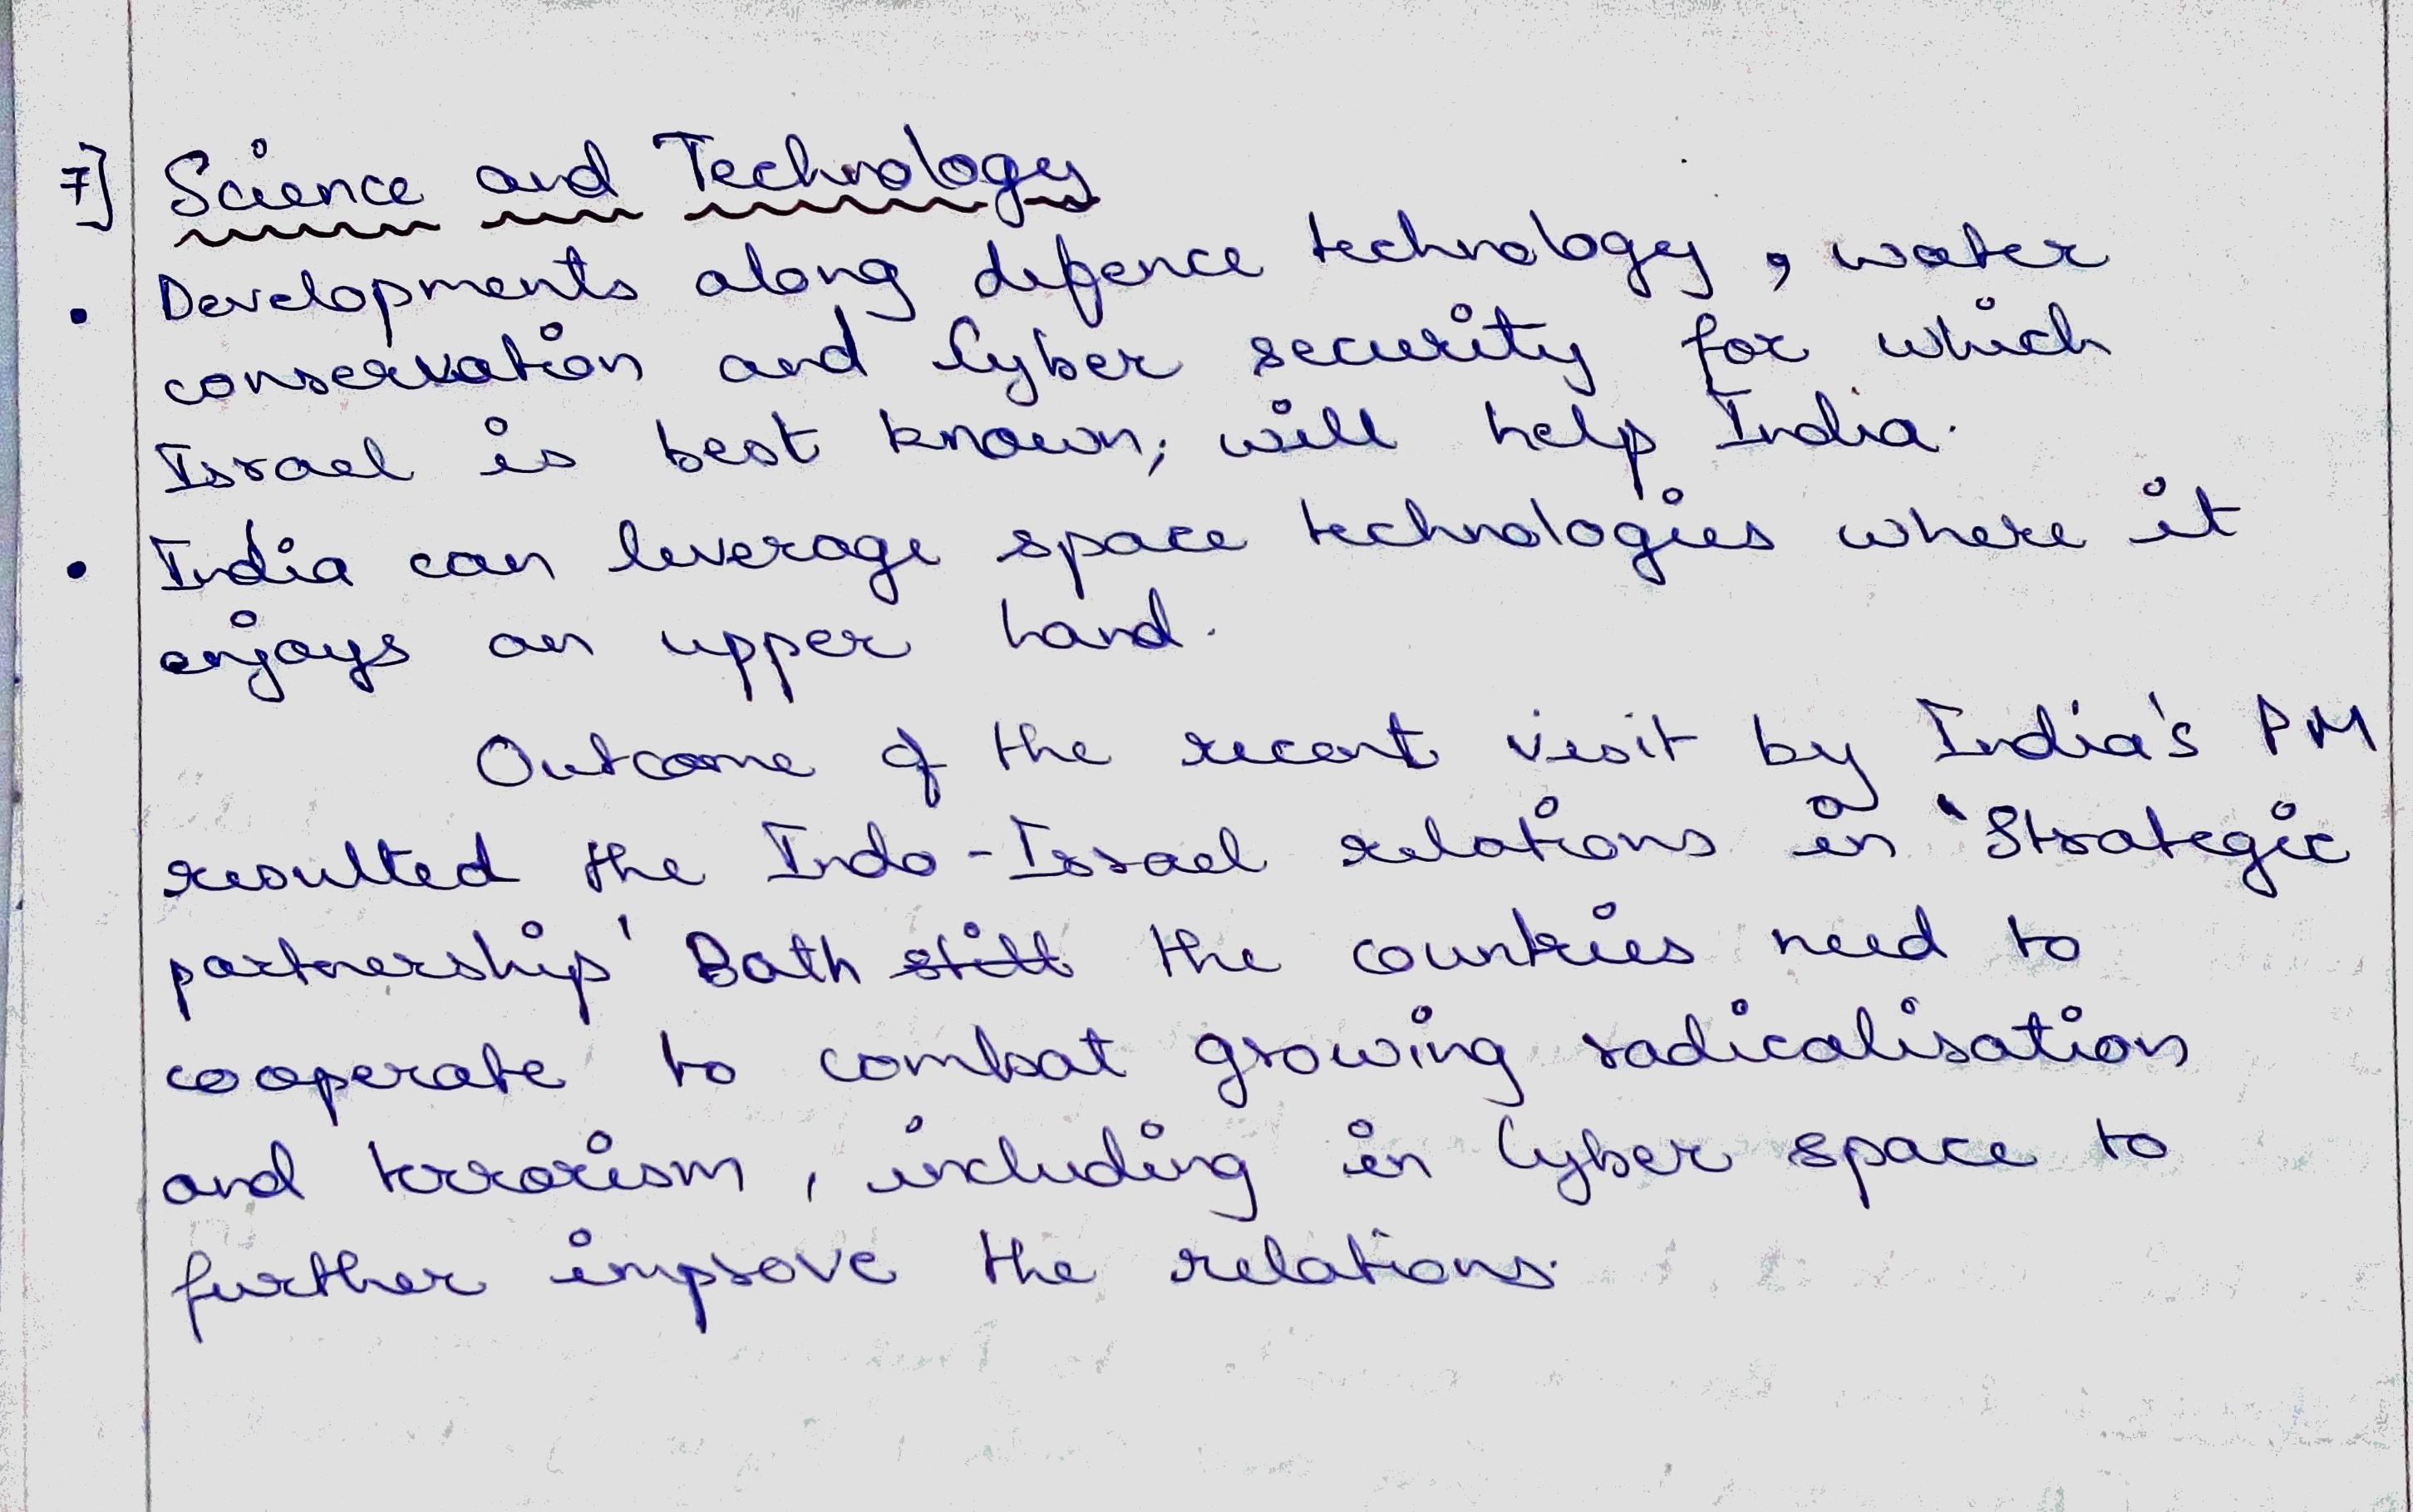 7] Science and Technology
• Developments along defence technology, water
conservation and Cyber security for which
Israel is best known; will help India.
• India can leverage space technologies where it
enjoys an upper hand.
Outcome of the recent visit by India's PM
resulted the Indo-Israel relations in 'Strategic
partnership' Both still the countries need to
cooperate to combat growing radicalisation
and terrorism, including in Cyber space to
further improve the relations.